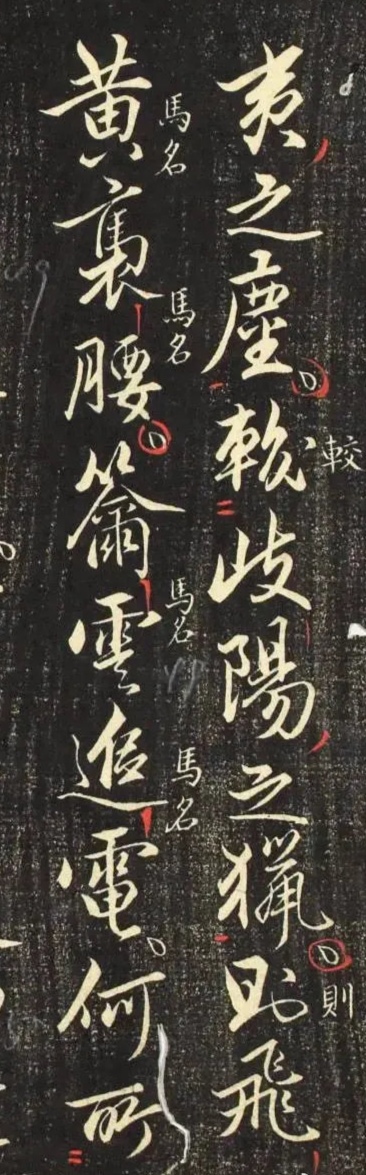 夷之塵較岐陽之猟則飛
較
則
黄騕褭𮌎雲追電何所
馬名
馬名
馬名
馬名